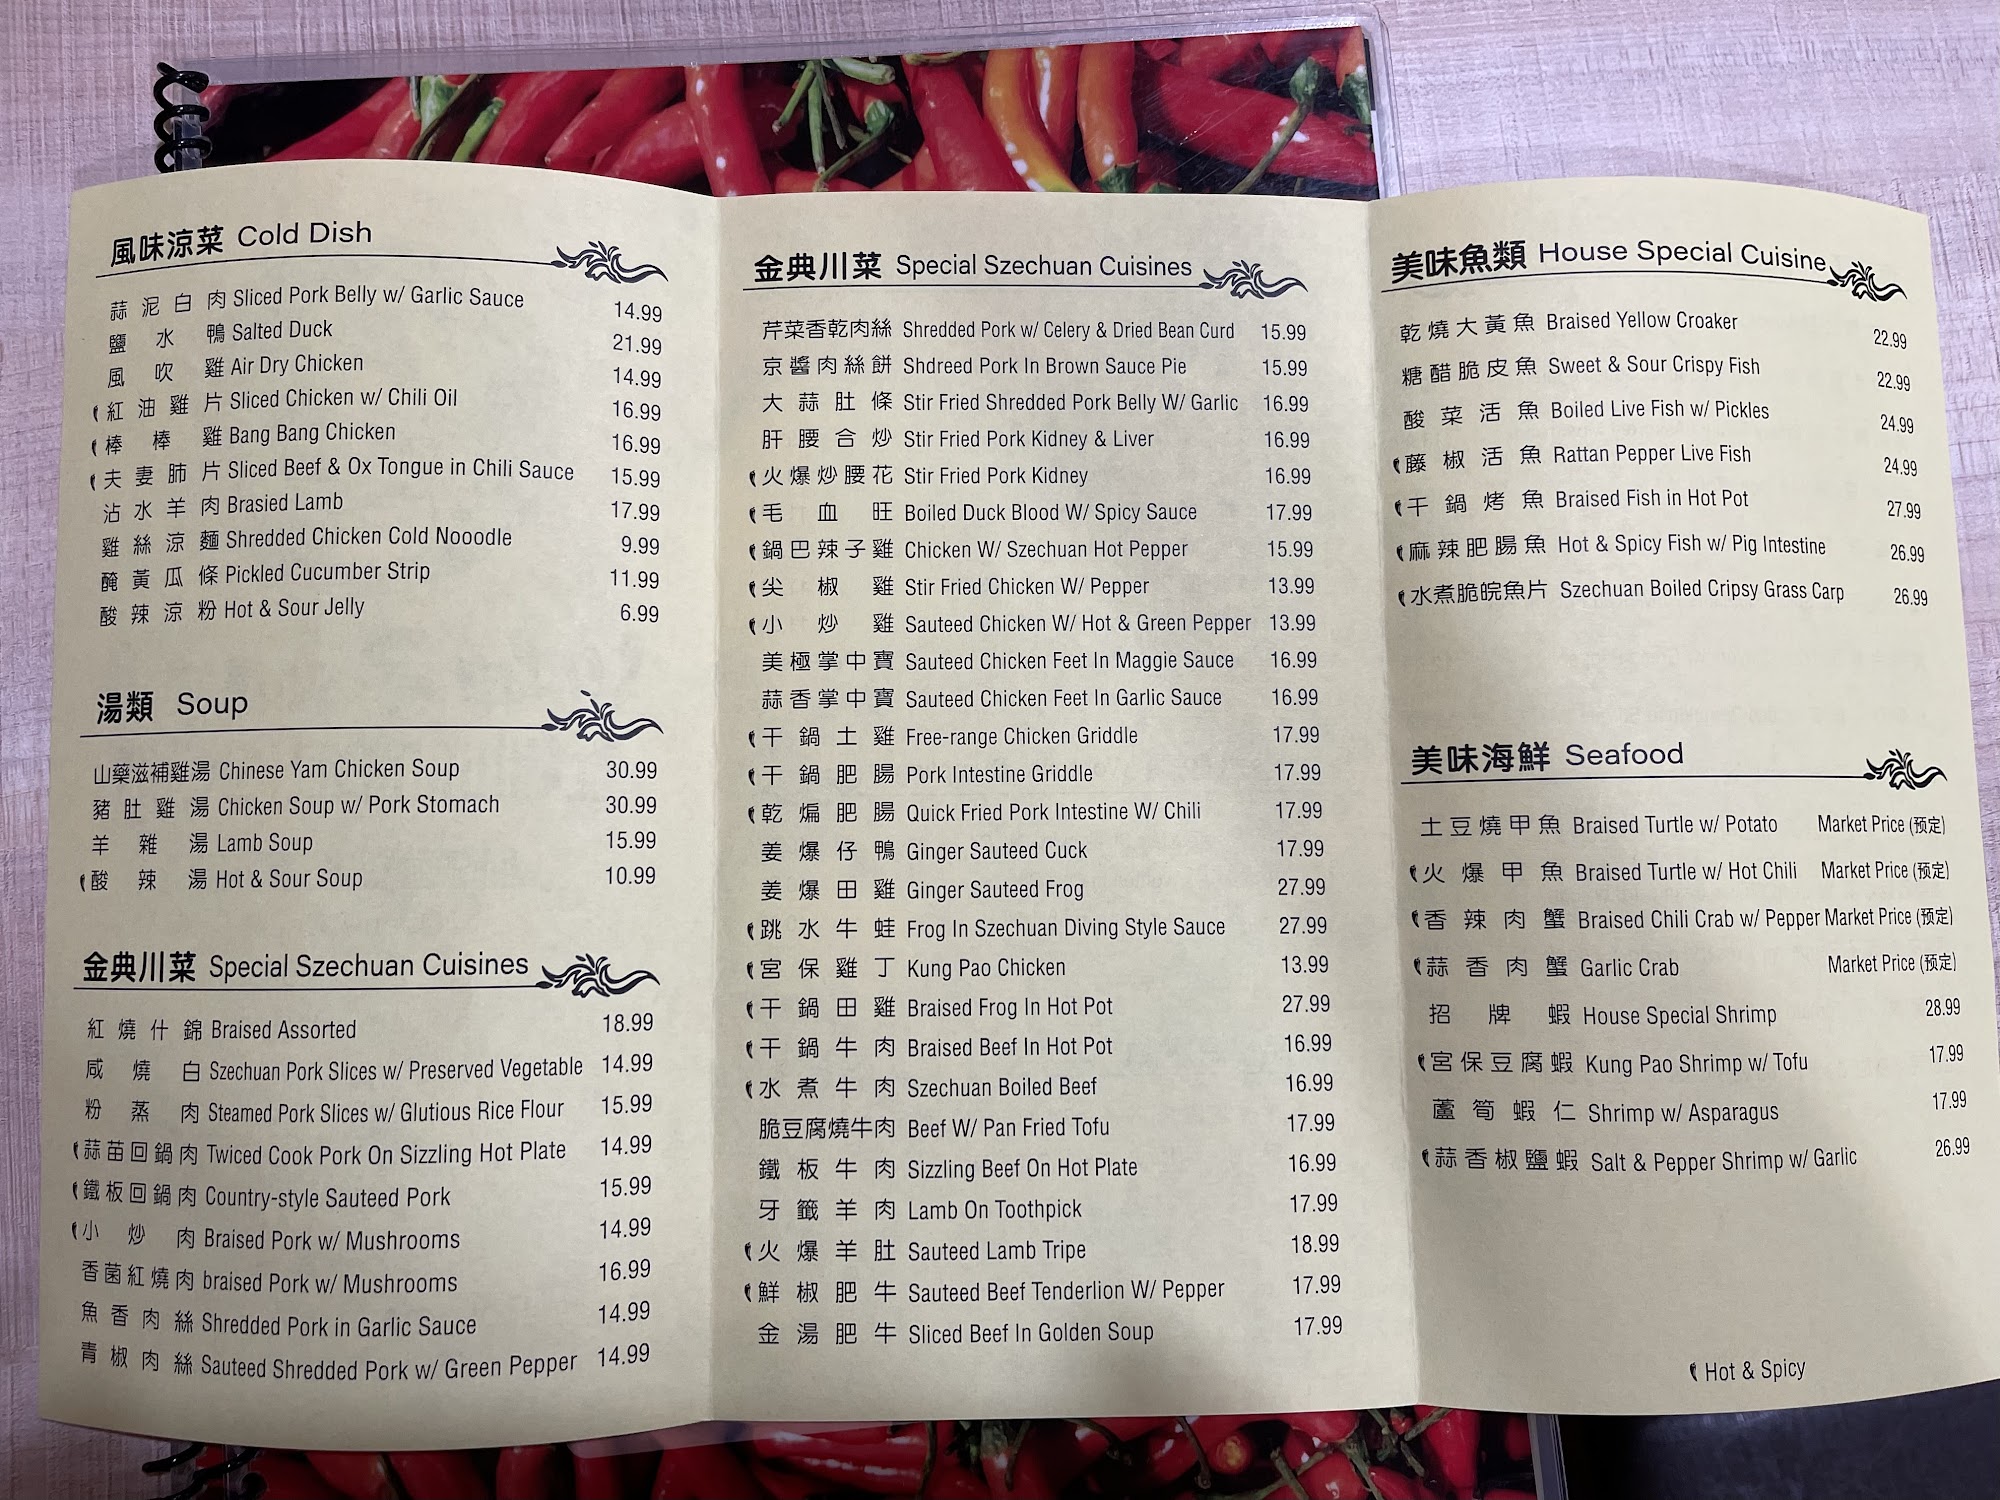 風味涼菜 Cold Dish
蒜泥白肉 Sliced Pork Belly w/ Garlic Sauce 14.99
鹽水鴨 Salted Duck 21.99
風吹雞 Air Dry Chicken 14.99
紅油雞片 Sliced Chicken w/ Chili Oil 16.99
棒棒雞 Bang Bang Chicken 16.99
夫妻肺片 Sliced Beef & Ox Tongue in Chili Sauce 15.99
沾水羊肉 Brasied Lamb 17.99
雞絲涼麵 Shredded Chicken Cold Nooodle 9.99
醃黃瓜條 Pickled Cucumber Strip 11.99
酸辣涼粉 Hot & Sour Jelly 6.99
湯類 Soup
山藥滋補雞湯 Chinese Yam Chicken Soup 30.99
豬肚雞湯 Chicken Soup w/ Pork Stomach 30.99
羊雜湯 Lamb Soup 15.99
酸辣湯 Hot & Sour Soup 10.99
金典川菜 Special Szechuan Cuisines
紅燒什錦 Braised Assorted 18.99
咸燒白 Szechuan Pork Slices w/ Preserved Vegetable 14.99
粉蒸肉 Steamed Pork Slices w/ Glutious Rice Flour 15.99
蒜苗回鍋肉 Twiced Cook Pork On Sizzling Hot Plate 14.99
鐵板回鍋肉 Country-style Sauteed Pork 15.99
小炒肉 Braised Pork w/ Mushrooms 14.99
香菌紅燒肉 braised Pork w/ Mushrooms 16.99
魚香肉絲 Shredded Pork in Garlic Sauce 14.99
青椒肉絲 Sauteed Shredded Pork w/ Green Pepper 14.99
金典川菜 Special Szechuan Cuisines
芹菜香乾肉絲 Shredded Pork w/ Celery & Dried Bean Curd 15.99
京醬肉絲餅 Shdreed Pork In Brown Sauce Pie 15.99
大蒜肚條 Stir Fried Shredded Pork Belly W/ Garlic 16.99
肝腰合炒 Stir Fried Pork Kidney & Liver 16.99
火爆炒腰花 Stir Fried Pork Kidney 16.99
毛血旺 Boiled Duck Blood W/ Spicy Sauce 17.99
鍋巴辣子雞 Chicken W/ Szechuan Hot Pepper 15.99
尖椒雞 Stir Fried Chicken W/ Pepper 13.99
小炒雞 Sauteed Chicken W/ Hot & Green Pepper 13.99
美極掌中寶 Sauteed Chicken Feet In Maggie Sauce 16.99
蒜香掌中寶 Sauteed Chicken Feet In Garlic Sauce 16.99
干鍋土雞 Free-range Chicken Griddle 17.99
干鍋肥腸 Pork Intestine Griddle 17.99
乾煸肥腸 Quick Fried Pork Intestine W/ Chili 17.99
姜爆仔鴨 Ginger Sauteed Cuck 17.99
姜爆田雞 Ginger Sauteed Frog 27.99
跳水牛蛙 Frog In Szechuan Diving Style Sauce 27.99
宮保雞丁 Kung Pao Chicken 13.99
干鍋田雞 Braised Frog In Hot Pot 27.99
干鍋牛肉 Braised Beef In Hot Pot 16.99
水煮牛肉 Szechuan Boiled Beef 16.99
脆豆腐燒牛肉 Beef W/ Pan Fried Tofu 17.99
鐵板牛肉 Sizzling Beef On Hot Plate 16.99
牙籤羊肉 Lamb On Toothpick 17.99
火爆羊肚 Sauteed Lamb Tripe 18.99
鮮椒肥牛 Sauteed Beef Tenderlion W/ Pepper 17.99
金湯肥牛 Sliced Beef In Golden Soup 17.99
美味魚類 House Special Cuisine
乾燒大黃魚 Braised Yellow Croaker 22.99
糖醋脆皮魚 Sweet & Sour Crispy Fish 22.99
酸菜活魚 Boiled Live Fish w/ Pickles 24.99
藤椒活魚 Rattan Pepper Live Fish 24.99
干鍋烤魚 Braised Fish in Hot Pot 27.99
麻辣肥腸魚 Hot & Spicy Fish w/ Pig Intestine 26.99
水煮脆皖魚片 Szechuan Boiled Cripsy Grass Carp 26.99
美味海鮮 Seafood
土豆燒甲魚 Braised Turtle w/ Potato Market Price (预定)
火爆甲魚 Braised Turtle w/ Hot Chili Market Price (预定)
香辣肉蟹 Braised Chili Crab w/ Pepper Market Price (预定)
蒜香肉蟹 Garlic Crab Market Price (预定)
招牌蝦 House Special Shrimp 28.99
宮保豆腐蝦 Kung Pao Shrimp w/ Tofu 17.99
蘆筍蝦仁 Shrimp w/ Asparagus 17.99
蒜香椒鹽蝦 Salt & Pepper Shrimp w/ Garlic 26.99
Hot & Spicy